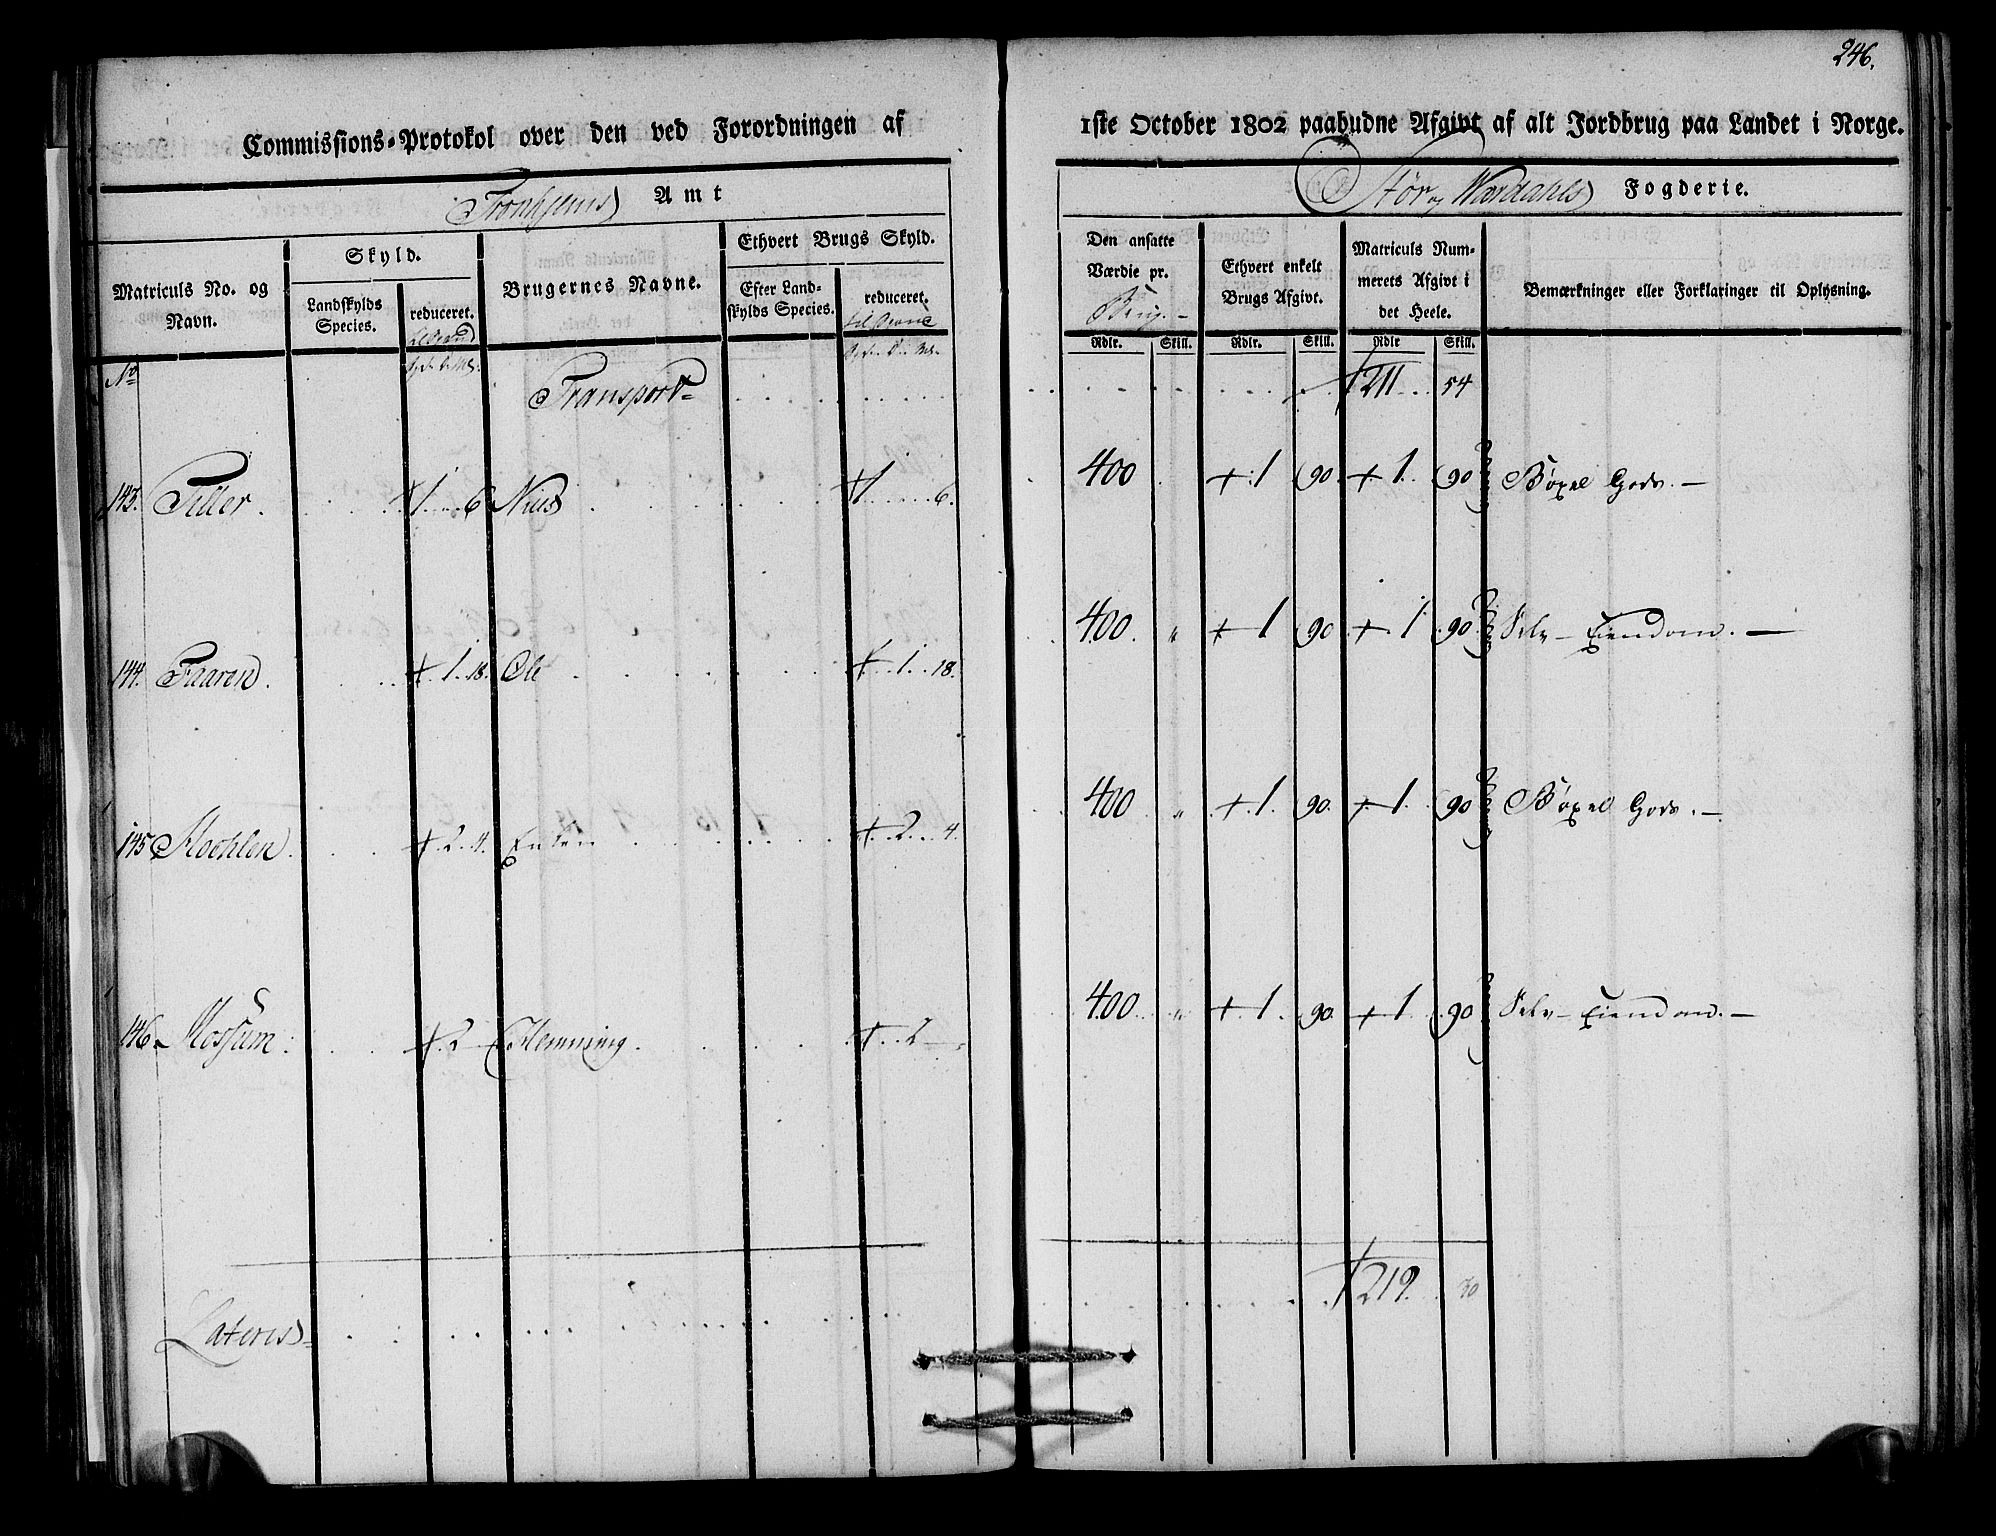 246.
Commissions-Protokol over den ved Forordningen af 1ste October 1802 paabudne Afgivt af alt Jordbrug paa Landet i Norge.
Tronhjems Amt
Stör og Wærdahls Fogderie.
Matriculs No. og Navn.
Skyld.
Landskylds Species.
reduceret.
Brugernes Navne.
Ethvert Brugs Skyld.
Efter Landskylds Species.
reduceret.
Den ansatte Værdie pr. Brug.-
Ethvert enkelt Brugs Afgivt.
Matriculs Nummerets Afgivt i det Heele.
Bemærkninger eller Forklaringer til Oplysning.
Rdlr. Skill. Rdlr. Skill. Rdlr Skill.
No
Transport- 211 54
143. Tiller. 1 6 Nils 1 6. 400 1 90. 1. 90 Böxel Gods.-
144. Faaren. 1. 18. Ole 1. 18. 400. " 1 90 1 90. Selv-Eiendom.-
145 Moehlen. 2. 4. Enken 2. 4. 400 " 1. 90. 1. 90 Böxel Gods.-
146. Mossum. 2 Hemming. 2 400. " 1. 90. 1 90 Selv-Eiendom.-
Lateris- 219. 30